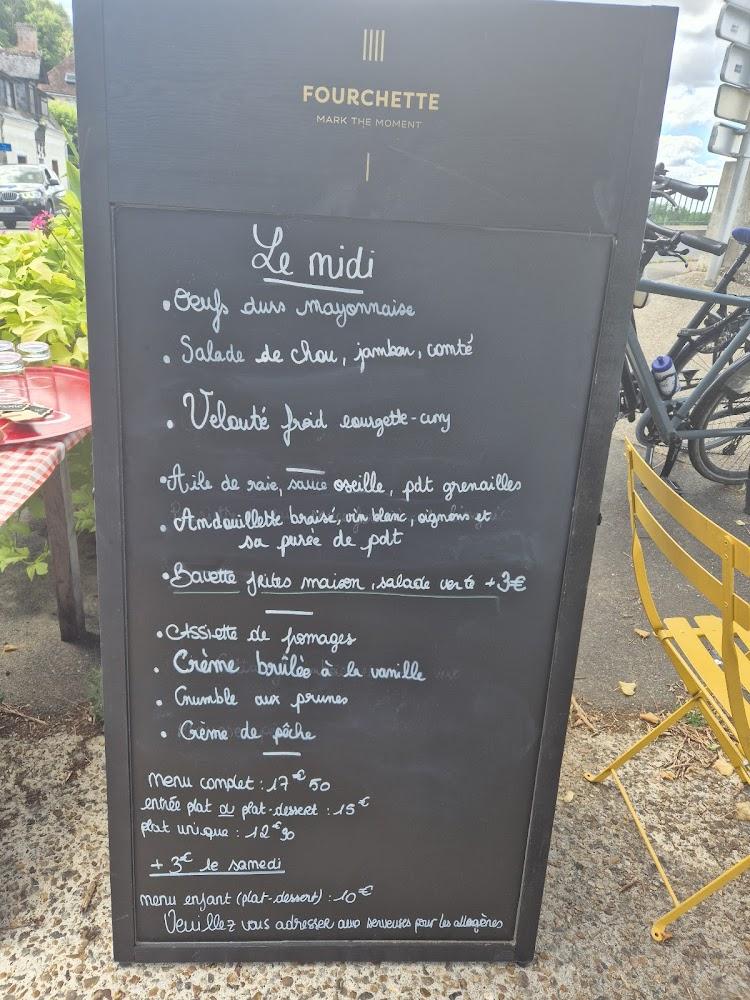 FOURCHETTE
MARK THE MOMENT
Le midi
• Oeufs durs mayonnaise
• Salade de chou, jambon, comté
• Velouté froid courgette-curry
• Aile de raie, sauce oseille, pdt grenailles
• Andouillette braisé, vin blanc, oignons et
sa purée de pdt
• Bavette frites maison, salade verte +3€
• Assiette de fromages
• Crème brûlée à la vanille
• Crumble aux prunes
• Crème de pêche
menu complet : 17€50
entrée plat ou plat-dessert : 15€
plat unique : 12€90
+ 3€ le samedi
menu enfant (plat-dessert) : 10€
Veuillez vous adresser aux serveuses pour les allergènes